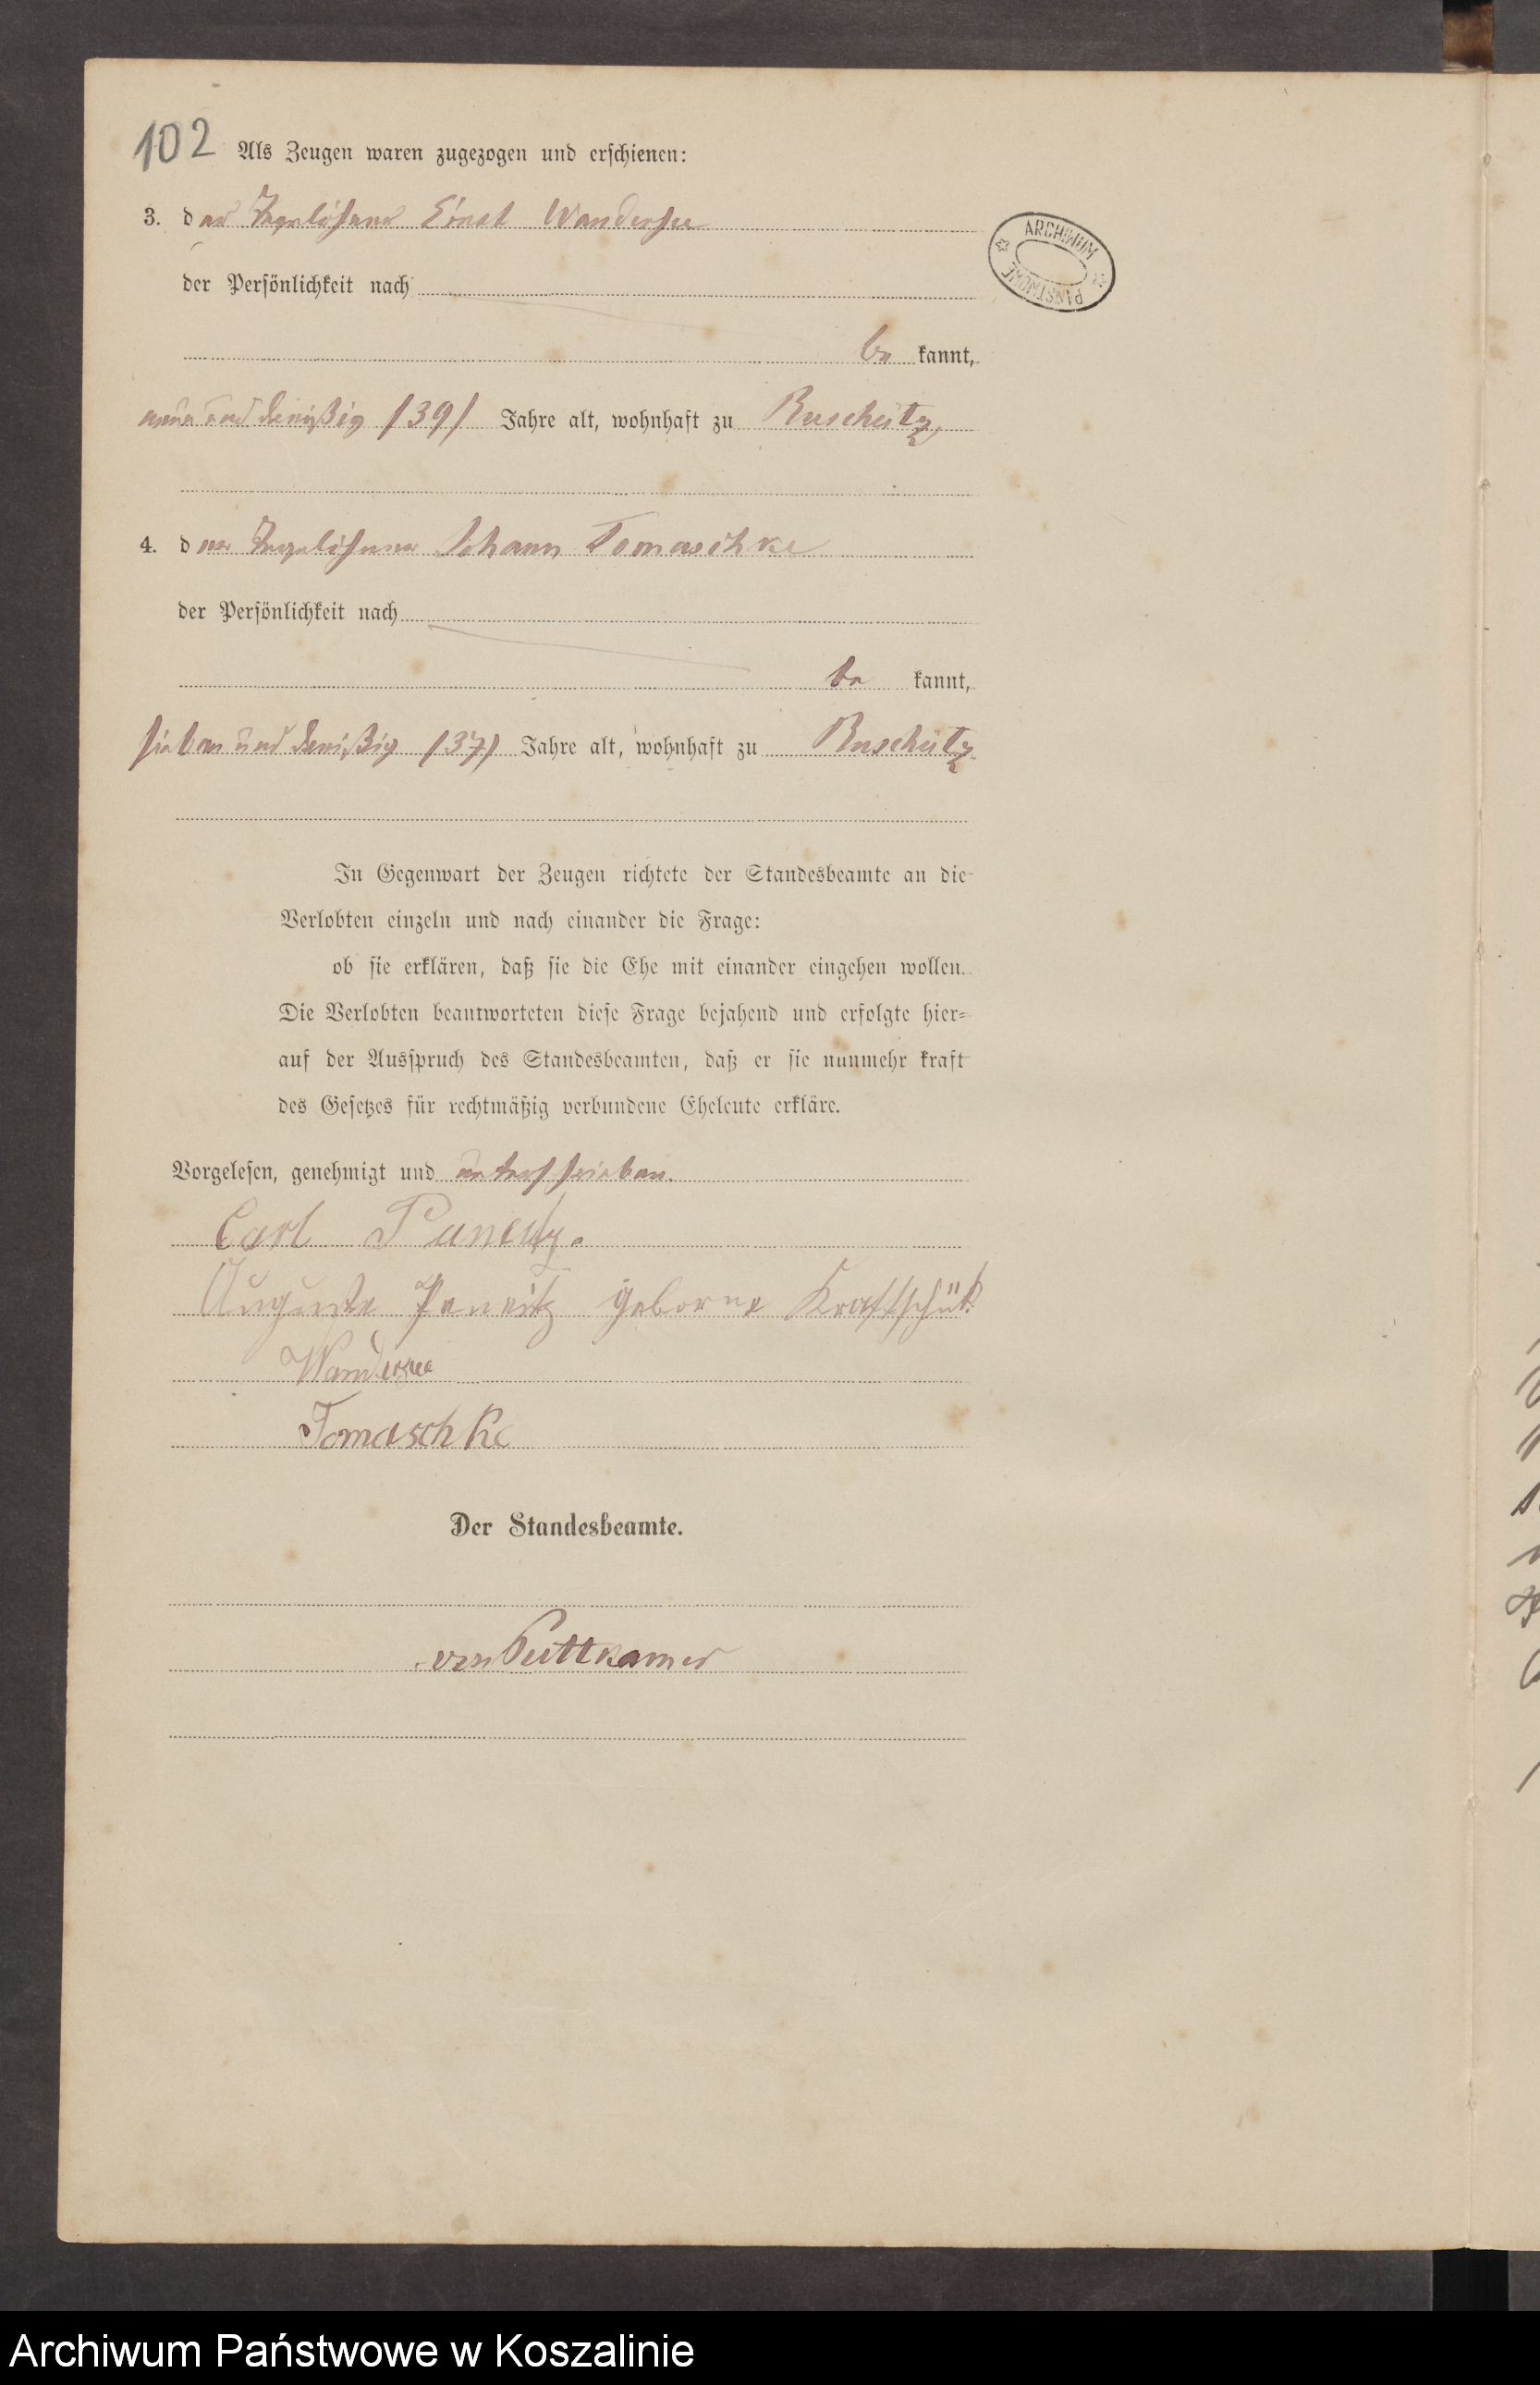 102
Als Zeugen waren zugezogen und erschienen:
3. der Tagelöhner Ernst Wandersee
der Persönlichkeit nach
be kannt,
neun und dreißig /39/ Jahre alt, wohnhaft zu Ruschütz,
4. der Tagelöhner Johann Tomaschke
der Persönlichkeit nach
be kannt,
sieben und dreißig /37/ Jahre alt, wohnhaft zu Ruschütz
In Gegenwart der Zeugen richtete der Standesbeamte an die
Verlobten einzeln und nach einander die Frage:
ob sie erklären, daß sie die Ehe mit einander eingehen wollen.
Die Verlobten beantworteten diese Frage bejahend und erfolgte hier-
auf der Ausspruch des Standesbeamten, daß er sie nunmehr kraft
des Gesetzes für rechtmäßig verbundene Eheleute erkläre.
Vorgelesen, genehmigt und unterschrieben.
Carl
Auguste geborne
Wandersee
Tomaschke
Der Standesbeamte.
von Puttkamer
ARCHIWUM PAŃSTWOWE
Archiwum Państwowe w Koszalinie